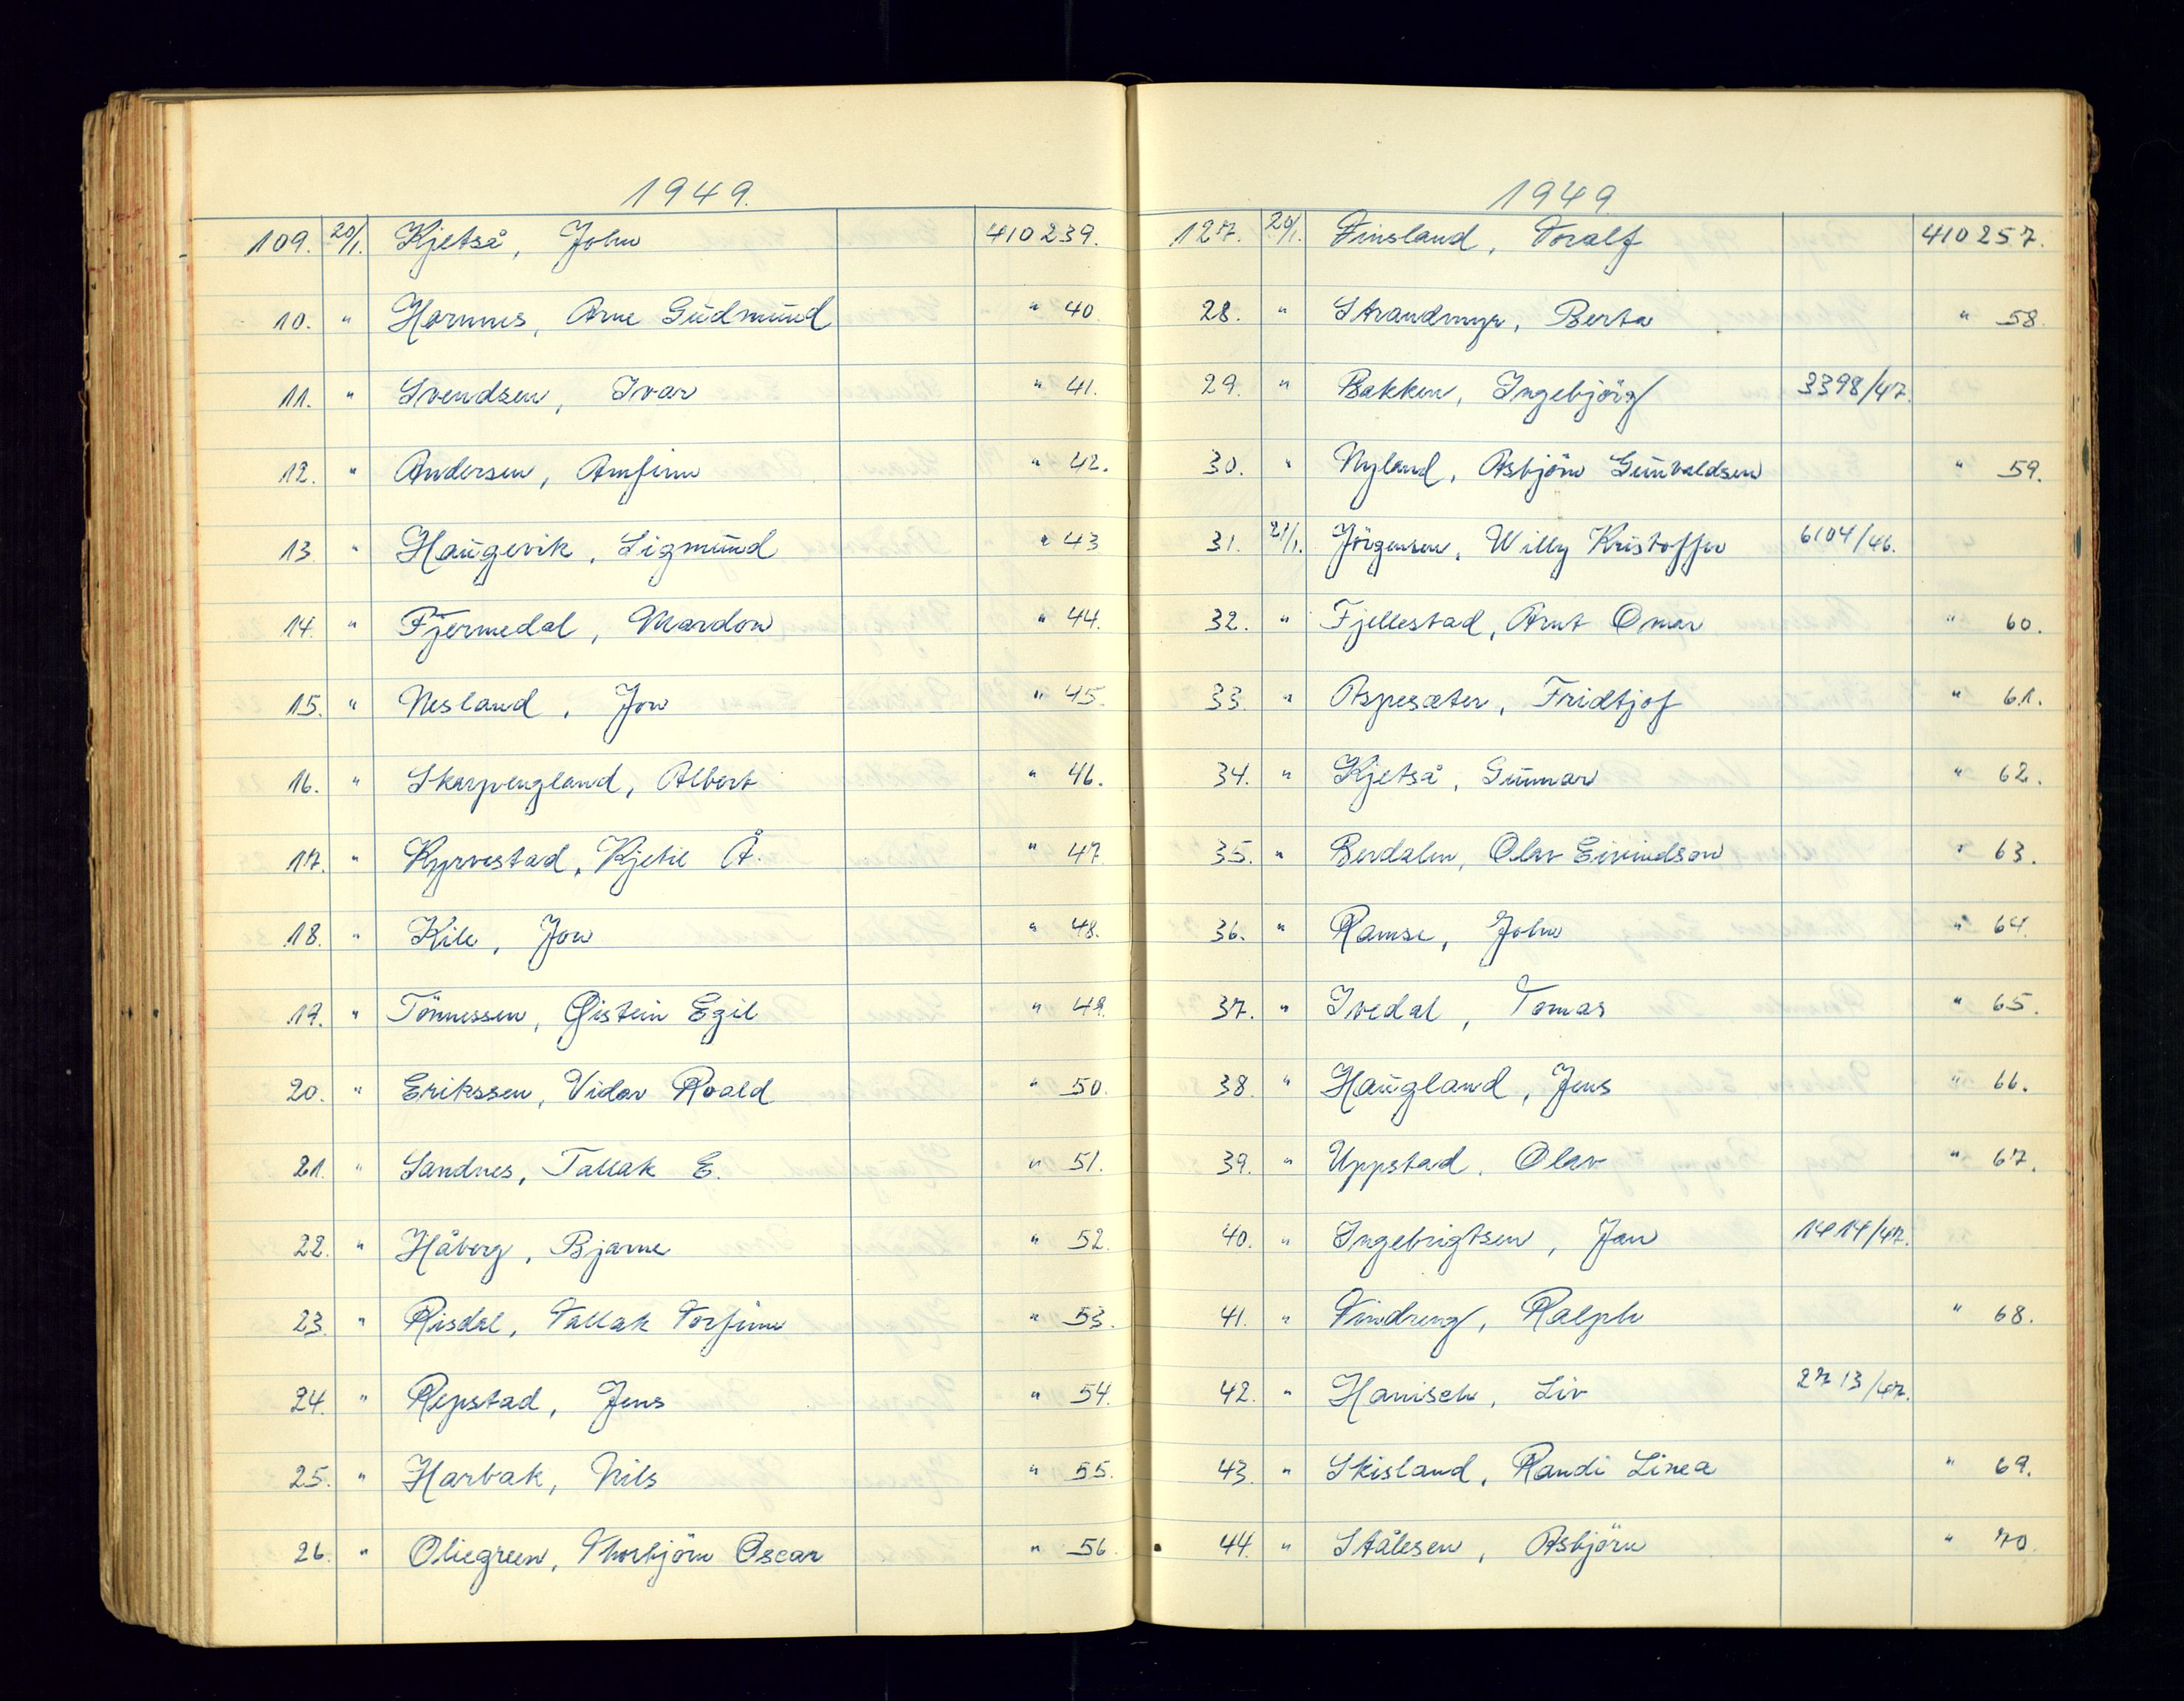 1949.
109. 20/1. Kjetså, John 410239.
10. " Hornnes, Arne Gudmund " 40
11. " Svendsen, Ivar " 41.
12. " Andersen, Arnfinn " 42.
13. " Haugevik, Sigmund " 43
14. " Fjermedal, Mardon " 44.
15. " Nesland, Jon " 45.
16. " Skarpengland, Albert " 46.
17. " Kyrvestad, Kjetil Å. " 47
18. " Kile, Jon " 48.
19. " Tönnessen, Øistein Egil " 49.
20. " Erikssen, Vidar Roald " 50.
21. " Sandnes, Tallak E. " 51.
22. " Håberg, Bjarne " 52.
23. " Risdal, Tallak Torfinn " 53.
24. " Repstad, Jens " 54.
25. " Harbak, Nils " 55.
26. " Oliegreen, Thorbjörn Oscar " 56
1949
127. 20/1. Finsland, Toralf 410257.
28. " Strandmyr, Berta " 58.
29. " Bakken, Ingebjörg 3398/47.
30. " Nyland, Asbjörn Gunvaldsen " 59.
31. 21/1. Jörgensen, Willy Kristoffer 6104/46.
32. " Fjellestad, Arnt Omar " 60.
33. " Aspesæter, Fridtjof " 61.
34. " Kjetså, Gunnar " 62.
35. " Berdalen, Olav Eivindson " 63.
36. " Ramse, John " 64.
37. " Ivedal, Tomas " 65.
38. " Haugland, Jens " 66.
39. " Uppstad, Olav " 67.
40. " Ingebrigtsen, Jan 1414/47.
41. " Findreng, Ralph " 68.
42. " Hanisch, Liv 2713/47.
43. " Skisland, Randi Linea " 69.
44. " Stålesen, Asbjörn " 70